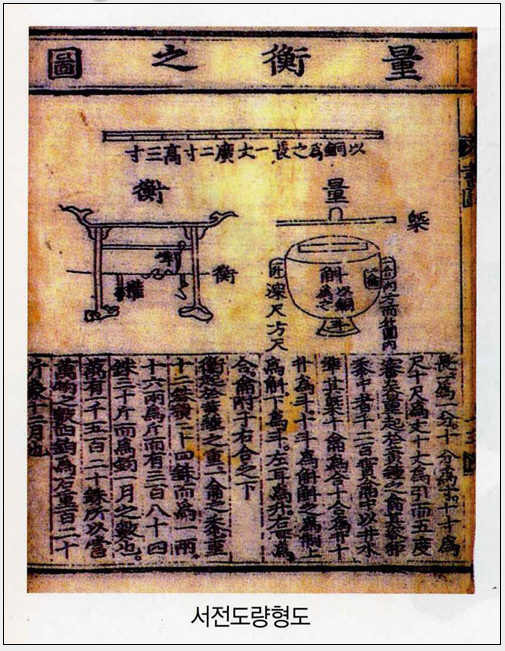 量衡之圖
以銅爲之長一丈廣二寸高三寸
量
槩
斛
以銅爲之
斗
升
深尺方尺
衡
衡
權
長爲一分。十分爲寸。十寸爲
尺十尺爲丈十丈爲引而五度
審矣量起於黃鍾之龠其容秬
黍中者千二百實龠中以井水
準其槩十龠爲合十合爲升十
升爲斗。十斗爲斛斛之爲制上
爲斛。下爲斗。左耳爲升。右耳爲
合龠附于右合之下
衡起於黃鍾之重一龠之黍重
十二銖積二十四銖而爲一兩
十六兩爲斤而有三百八十四
銖三十斤而爲鈞一月之數也。
萬有一千五百二十銖所以當
萬物之數四鈞爲石重百二十
斤象十二月也
서전도량형도